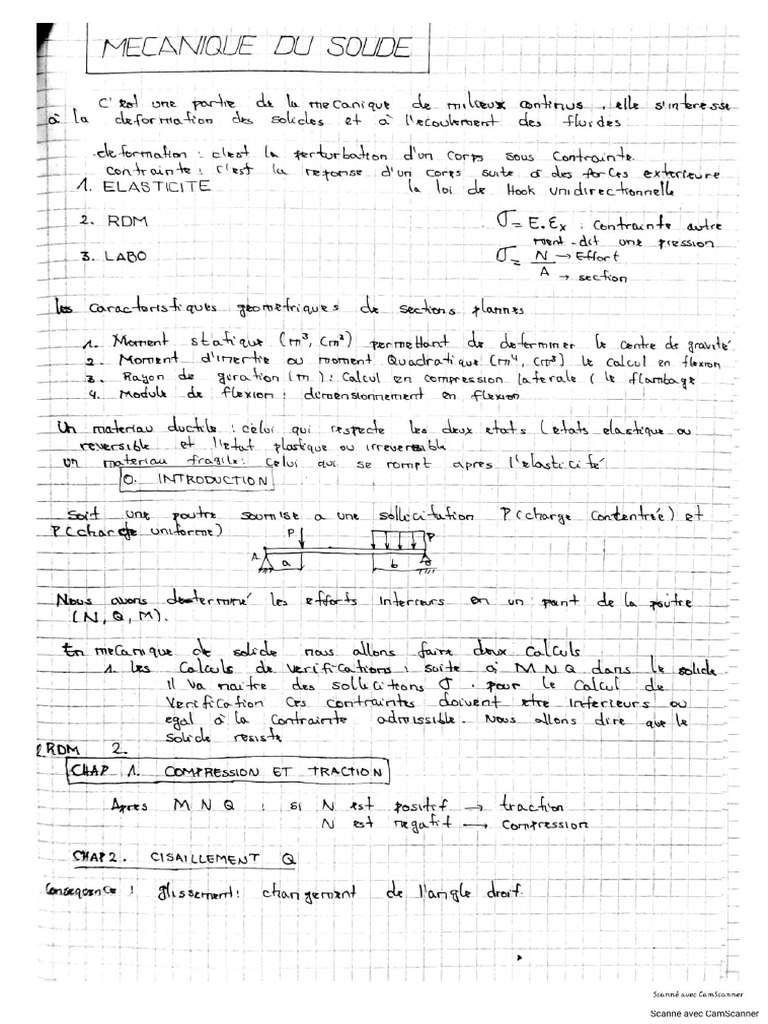 MECANIQUE DU SOLIDE
C'est une partie de la mecanique de milieux continus, elle s'interesse
à la deformation des solides et à l'ecoulement des fluides
deformation : c'est la perturbation d'un corps sous contrainte.
contrainte : c'est la reponse d'un corps suite à des forces exterieure
1. ELASTICITE la loi de Hook unidirectionnelle
2. RDM σ = E.εx : contrainte autre
ment-dit une pression
3. LABO σ = N → Effort
A → section
les caracteristiques geometriques de sections plannes
1. Moment statique (m³, cm³) permettant de determiner le centre de gravité
2. Moment d'inertie ou moment Quadratique (m⁴, cm⁴) le calcul en flexion
3. Rayon de giration (m) : Calcul en compression laterale (le flambage
4. Module de flexion : dimensionnement en flexion
Un materiau ductile : celui qui respecte les deux etats (etats elastique ou
reversible et l'etat plastique ou irreversible
un materiau fragile : celui qui se rompt apres l'elasticité
0. INTRODUCTION
Soit une poutre soumise a une sollicitation P(charge concentreé) et
P(charge uniforme)
P P
A a b B
Nous avons determiné les efforts interieurs en un point de la poutre
(N, Q, M).
En mecanique de solide nous allons faire deux calculs
1. les calculs de verifications : suite à M N Q dans le solide
Il va naitre des sollicitions σ. pour le calcul de
verification ces contraintes doivent etre inferieurs ou
egal à la contrainte admissible. Nous allons dire que le
solide resiste
RDM 2.
CHAP 1. COMPRESSION ET TRACTION
Apres M N Q : si N est positif → traction
N est negatif → compression
CHAP 2. CISAILLEMENT Q
Consequence : glissement : changement de l'angle droit.
Scanné avec CamScanner
Scanne avec CamScanner